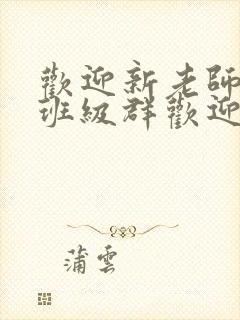 歡迎新老師
班級群歡迎
蒲雲